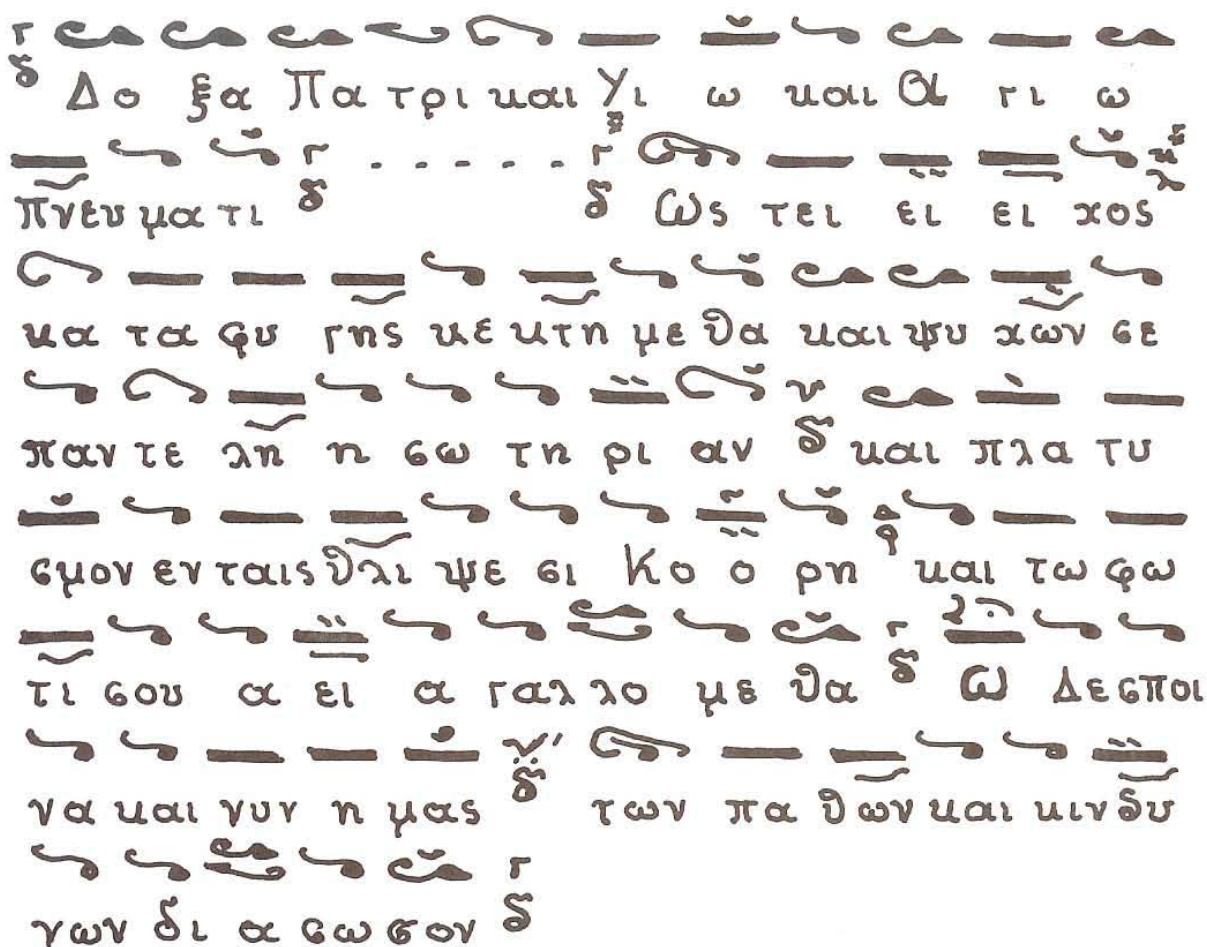 Δο ξα Πα τρι και Υι ω και Α γι ω
Πνευ μα τι Ως τει ει ει χος
κα τα φυ γης κε κτη με θα και ψυ χων σε
παν τε λη η σω τη ρι αν και πλα τυ
σμον εν ταις θλι ψε σι Κο ο ρη και τω φω
τι σου α ει α γαλ λο με θα Ω Δεσποι
να και νυν η μας των πα θων και κινδυ
νων δι α σω σον